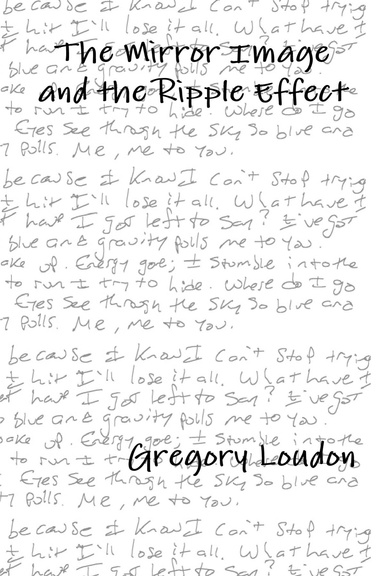 because I know I can't stop trying
t hit I'll lose it all. What have I
The Mirror Image
have I got left to say? I've got
blue and gravity pulls me to you.
and the Ripple Effect
to run I try to hide. Where do I go
Eyes see through the sky so blue and
pulls. Me, me to you.
because I know I can't stop trying
t hit I'll lose it all. What have I
have I got left to say? I've got
blue and gravity pulls me to you.
ake up. Energy goe; I stumble into the
to run I try to hide. Where do I go
Eyes see through the sky so blue and
pulls. Me, me to you.
because I know I can't stop trying
t hit I'll lose it all. What have I
have I got left to say? I've got
blue and gravity pulls me to you.
ake up. Energy goe; I stumble into the
to run I
Gregory Loudon
Eyes see through the sky so blue and
pulls. Me, me to you.
because I know I can't stop trying
t hit I'll lose it all. What have I
have I got left to say? I've got